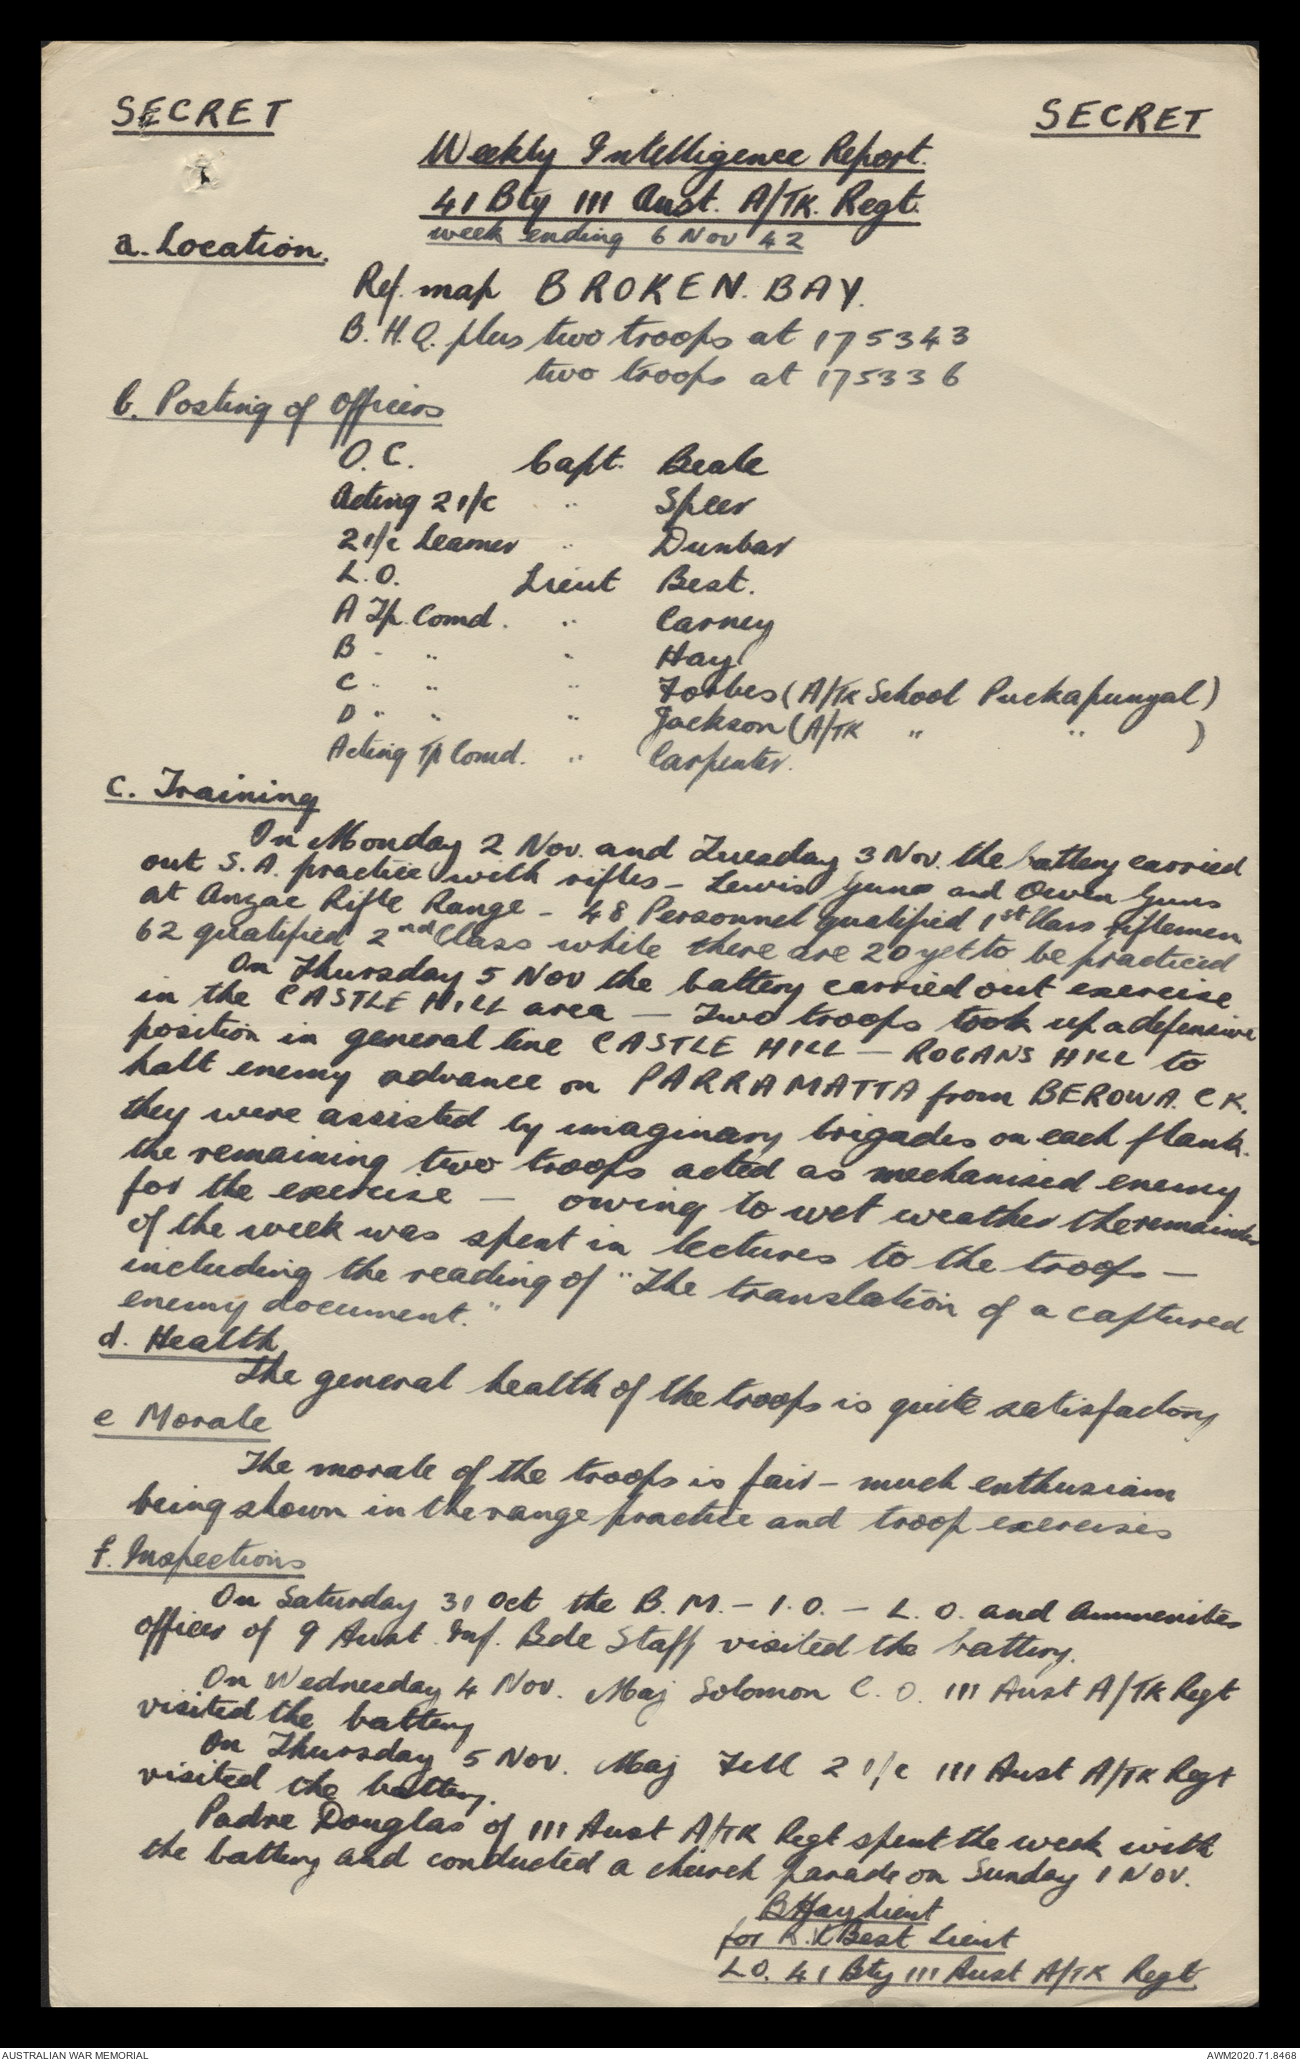 SECRET SECRET
Weekly Intelligence Report.
41 Bty 111 Aust. A/TK. Regt.
week ending 6 Nov 42
a. Location.
Ref. map BROKEN. BAY.
B.H.Q. plus two troops at 175343
two troops at 175336
b. Posting of Officers
O.C. Capt. Beale
Acting 2 i/c " Speer
2 i/c Learner " Dunbar
L.O. Lieut Best.
A Tp. Comd. " Carney
B " " " Hay
C " " " Forbes (A/TK School Puckapunyal)
D " " " Jackson (A/TK " " )
Acting Tp Comd. " Carpenter.
c. Training
On Monday 2 Nov. and Tuesday 3 Nov. the battery carried
out S.A. practice with rifles - Lewis Guns and Owen Guns
at Anzac Rifle Range - 48 Personnel qualified 1st Class riflemen
62 qualified 2nd Class while there are 20 yet to be practiced
On Thursday 5 Nov the battery carried out exercise
in the CASTLE HILL area - Two troops took up a defensive
position in general line CASTLE HILL - ROGANS HILL to
halt enemy advance on PARRAMATTA from BEROWA. CK.
they were assisted by imaginary brigades on each flank.
the remaining two troops acted as mechanised enemy
for the exercise - owing to wet weather the remainder
of the week was spent in lectures to the troops -
including the reading of "The translation of a captured
enemy document."
d. Health
The general health of the troops is quite satisfactory
e Morale
The morale of the troops is fair - much enthusiam
being shown in the range practice and troop exercises
f. Inspections
On Saturday 31 Oct the B.M. - I.O. - L.O. and Ammenities
officer of 9 Aust. Inf. Bde Staff visited the battery.
On Wednesday 4 Nov. Maj Solomon C.O. 111 Aust A/TK Regt
visited the battery
On Thursday 5 Nov. Maj Fell 2 i/c 111 Aust A/TK Regt
visited the battery.
Padre Douglas of 111 Aust A/TK Regt spent the week with
the battery and conducted a church parade on Sunday 1 Nov.
B Hay Lieut
for R.K Best Lieut
L.O. 41 Bty 111 Aust A/TK Regt
AUSTRALIAN WAR MEMORIAL AWM2020.71.8468